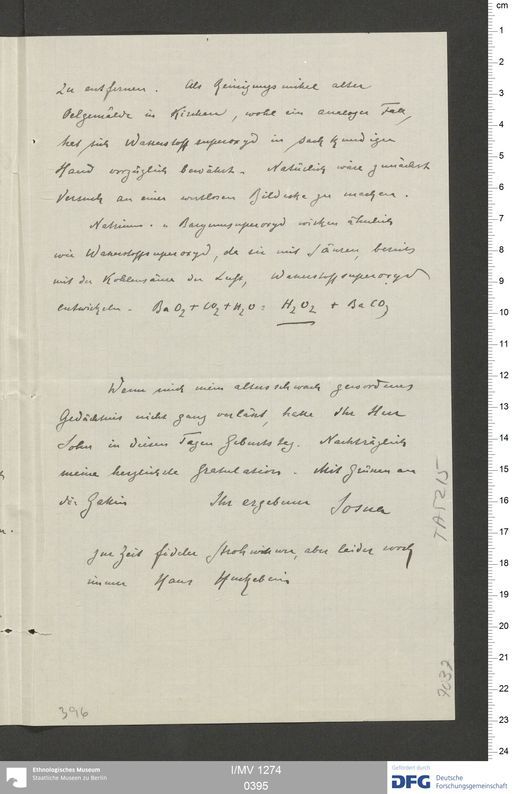 zu entfernen. Als Reinigungsmittel alter
Oelgemälde in Kirchen, wohl ein analoger Fall,
hat sich Wasserstoffsuperoxyd in sachkundiger
Hand vorzüglich bewährt. Natürlich wäre zunächst
Versuch an einer wertlosen Bildecke zu machen.
Natrium- u Baryumsuperoxyd wirken ähnlich
wie Wasserstoffsuperoxyd, da sie mit Säuren, bereits
mit der Kohlensäure der Luft, Wasserstoffsuperoxyd
entwickeln. BaO2 + CO2 + H2O = H2O2 + BaCO3
Wenn mich mein altersschwach gewordenes
Gedächtnis nicht ganz verläßt, hatte Ihr Herr
Sohn in diesen Tagen Geburtstag. Nachträglich
meine herzlichste Gratulation. Mit Grüssen an
die Gattin Ihr ergebener
zur Zeit fideler Strohwitwer, aber leider noch
immer Haus
TA5215
7032
396
cm
1
2
3
4
5
6
7
8
9
10
11
12
13
14
15
16
17
18
19
20
21
22
23
24
Ethnologisches Museum
Staatliche Museen zu Berlin
I/MV 1274
0395
Gefördert durch
DFG Deutsche
Forschungsgemeinschaft